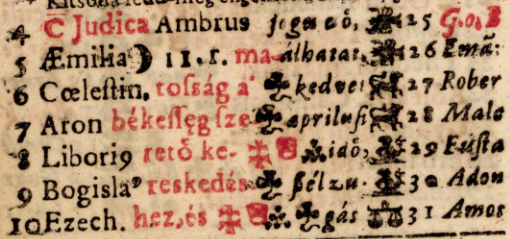 4 C Judica Ambrus 25 G.o.B
5 Æmilia 11.r. ma- álhatat, 26 Emã:
6 Cœleſtin. toſság a' kedvet 27 Rober
7 Aron békeſſęg ſze- aprilusi 28 Mala
8 Libori9 rető ke- idő, 29 Euſta
9 Bogisla9 reskedés ſélzu- 30 Adon
10 Ezech. hez, és gás 31 Amos